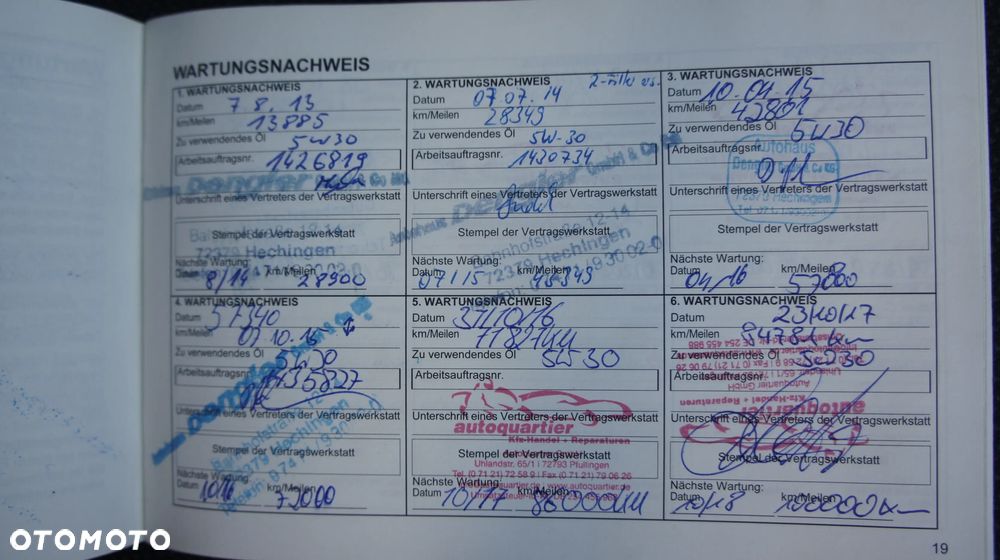 WARTUNGSNACHWEIS
1. WARTUNGSNACHWEIS
Datum 7 8. 13
km/Meilen 13885
Zu verwendendes Öl 5W30
Arbeitsauftragsnr. 1426819
Dengler GmbH & Co KG
Unterschrift eines Vertreters der Vertragswerkstatt
Stempel der Vertragswerkstatt
72379 Hechingen
Nächste Wartung:
Datum 8/14 km/Meilen 28900
2. WARTUNGSNACHWEIS
Datum 07 07. 14
km/Meilen 28349
Zu verwendendes Öl 5W-30
Arbeitsauftragsnr. 1430734
Autohaus Dengler GmbH & Co KG
Unterschrift eines Vertreters der Vertragswerkstatt
Stempel der Vertragswerkstatt
Bahnhofstraße 12-14
72379 Hechingen
Nächste Wartung:
Datum 07/15 km/Meilen 48349
3. WARTUNGSNACHWEIS
Datum 10.04.15
km/Meilen 42801
Zu verwendendes Öl 5W30
Arbeitsauftragsnr.
Autohaus
Unterschrift eines Vertreters der Vertragswerkstatt
72379 Hechingen
Stempel der Vertragswerkstatt
Nächste Wartung:
Datum 04/16 km/Meilen 57000
4. WARTUNGSNACHWEIS
Datum 57340
km/Meilen
Zu verwendendes Öl 5W30
Arbeitsauftragsnr.
Unterschrift eines Vertreters der Vertragswerkstatt
Stempel der Vertragswerkstatt
72379 Hechingen
Nächste Wartung:
Datum 10/16 km/Meilen 72000
5. WARTUNGSNACHWEIS
Datum 31/10/16
km/Meilen
Zu verwendendes Öl 5W30
Arbeitsauftragsnr.
Unterschrift eines Vertreters der Vertragswerkstatt
autoquartier
Kfz-Handel + Reparaturen
Stempel der Vertragswerkstatt
Uhlandstr. 65/1 | 72793 Pfullingen
Tel. (0 71 21) 72 58 9 | Fax (0 71 21) 79 06 26
Nächste Wartung:
Datum 10/17 km/Meilen 86000KM
6. WARTUNGSNACHWEIS
Datum 23/10/17
km/Meilen
Zu verwendendes Öl 5W30
Arbeitsauftragsnr.
Autoquartier GmbH
Kfz-Handel + Reparaturen
autoquartier
Unterschrift eines Vertreters der Vertragswerkstatt
Stempel der Vertragswerkstatt
Nächste Wartung:
Datum 10/18 km/Meilen 100000km
19
OTOMOTO